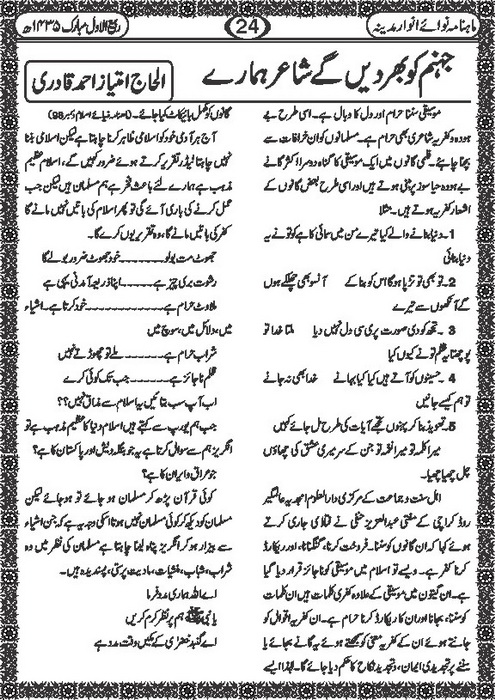 ماہنامہ نوائے انوار مدینہ
24
ربیع الاول مبارک ۱۴۳۵ھ
جہنم کو بھر دیں گے شاعر ہمارے
الحاج امتیاز احمد قادری
موسیقی سننا حرام اور دل کا وبال ہے۔ اسی طرح بے
ہودہ و کفریہ شاعری بھی حرام ہے۔ مسلمانوں کو ان خرافات سے
بچنا چاہئے۔ فلمی گانوں میں ایک موسیقی کا گناہ دوسرا، اکثر گانے
بے ہودہ حیا سوز پر مبنی ہوتے ہیں اور اسی طرح بعض گانوں کے
اشعار کفریہ ہوتے ہیں۔ مثلاً
1۔ دنیا بنانے والے کیا تیرے من میں سمائی کاہے کو تو نے یہ
دنیا بنائی
2۔ تو بھی تو تڑپا ہوگا اس کو بنا کے آنسو بھی چھلکے ہوں
گے آنکھوں سے تیرے
3۔ تجھ کو دی صورت پری سی دل نہیں دیا ملتا خدا تو
پوچھتا یہ ظلم تو نے کیوں کیا
4۔ حسینوں کو آتے ہیں کیا کیا بہانے خدا بھی نہ جانے
تو ہم کیسے جانیں
5۔ تعویذ بنا کر پہنوں تجھے آیات کی طرح مل جائے کہیں
میرا کلمہ تو میرا نغمہ تو جن کے سر میری عشق کی چھاؤں
چل چھیا چھیا۔
اہل سنت و جماعت کے مرکزی دارالعلوم امجدیہ عالمگیر
روڈ کراچی کے مفتی عبدالعزیز حنفی نے فتاویٰ جاری کرتے
ہوئے کہا کہ ان گانوں کو سننا۔ فروخت کرنا، گنگنانا، اور ریکارڈ
کرنا کفر ہے۔ ویسے تو اسلام میں موسیقی کو ناجائز قرار دیا گیا
ہے۔ ان گیتوں میں موسیقی کے علاوہ کفری کلمات ہیں ان کلمات
کو سننا، بجانا اور ان کا ریکارڈ کرنا حرام ہے۔ ان کفریہ اقوال کو
جانتے ہوئے ان کے کفریہ معنی کو سمجھتے ہوئے یہ گانے بجائے یا
سنے پر تجدید ایمان، وتجدید نکاح کا حکم دیا جائے گا۔ لہٰذا ایسے
گانوں کو مکمل بائیکاٹ کیا جائے۔ (ماہنامہ دنیائے اسلام دسمبر 98)
آج ہر آدمی خود کو اسلامی ظاہر کرنا چاہتا ہے لیکن اسلامی بننا
نہیں چاہتا لیڈر تقریر کرتے ہوئے ضرور کہیں گے، اسلام عظیم
مذہب ہے ہمارے لئے باعث فخر ہے ہم مسلمان ہیں لیکن جب
عمل کرنے کی باری آئے گی تو پھر اسلام کی باتیں نہیں مانے گا
کفر کی باتیں مانے گا، وہ تقریر یوں کرے گا۔
جھوٹ مت بولو.......... خود جھوٹ ضرور بولے گا
رشوت بری چیز ہے.......... اپنا ذریعہ آمدنی یہی ہے
ملاوٹ حرام ہے.......... خود کرتا ہے۔ اشیاء
میں، دلائل میں، سوچ میں
شراب حرام ہے.......... ملے تو چھوڑتے نہیں
ظلم ناجائز ہے.......... جب تک کوئی کرے
اب آپ سب بتائیں یہ اسلام سے مذاق نہیں؟؟؟
جب ہم یورپ سے کہتے ہیں اسلام دنیا کا عظیم مذہب ہے تو
انگریز ہم سے سوال کرتا ہے یہ جو بنگلہ دیش اور پاکستان کا ہے؟
جو عراق و ایران کا ہے؟
کوئی قرآن پڑھ کر مسلمان ہو جائے تو ہو جائے لیکن
مسلمان کو دیکھ کر کوئی مسلمان نہیں ہوتا اسکی وجہ یہ ہے کہ جن اشیاء
سے بیزار ہو کر انگریز پناہ لینا چاہتا ہے مسلمان کی نظر میں وہ
شراب، شباب، منشیات، مادیت پرستی، پسندیدہ ہیں۔
اے اللہ ہماری مدد فرما
یا نبی ﷺ ہم پر نظر کرم کریں
اے گنبد خضریٰ کے مکیں وقت مدد ہے